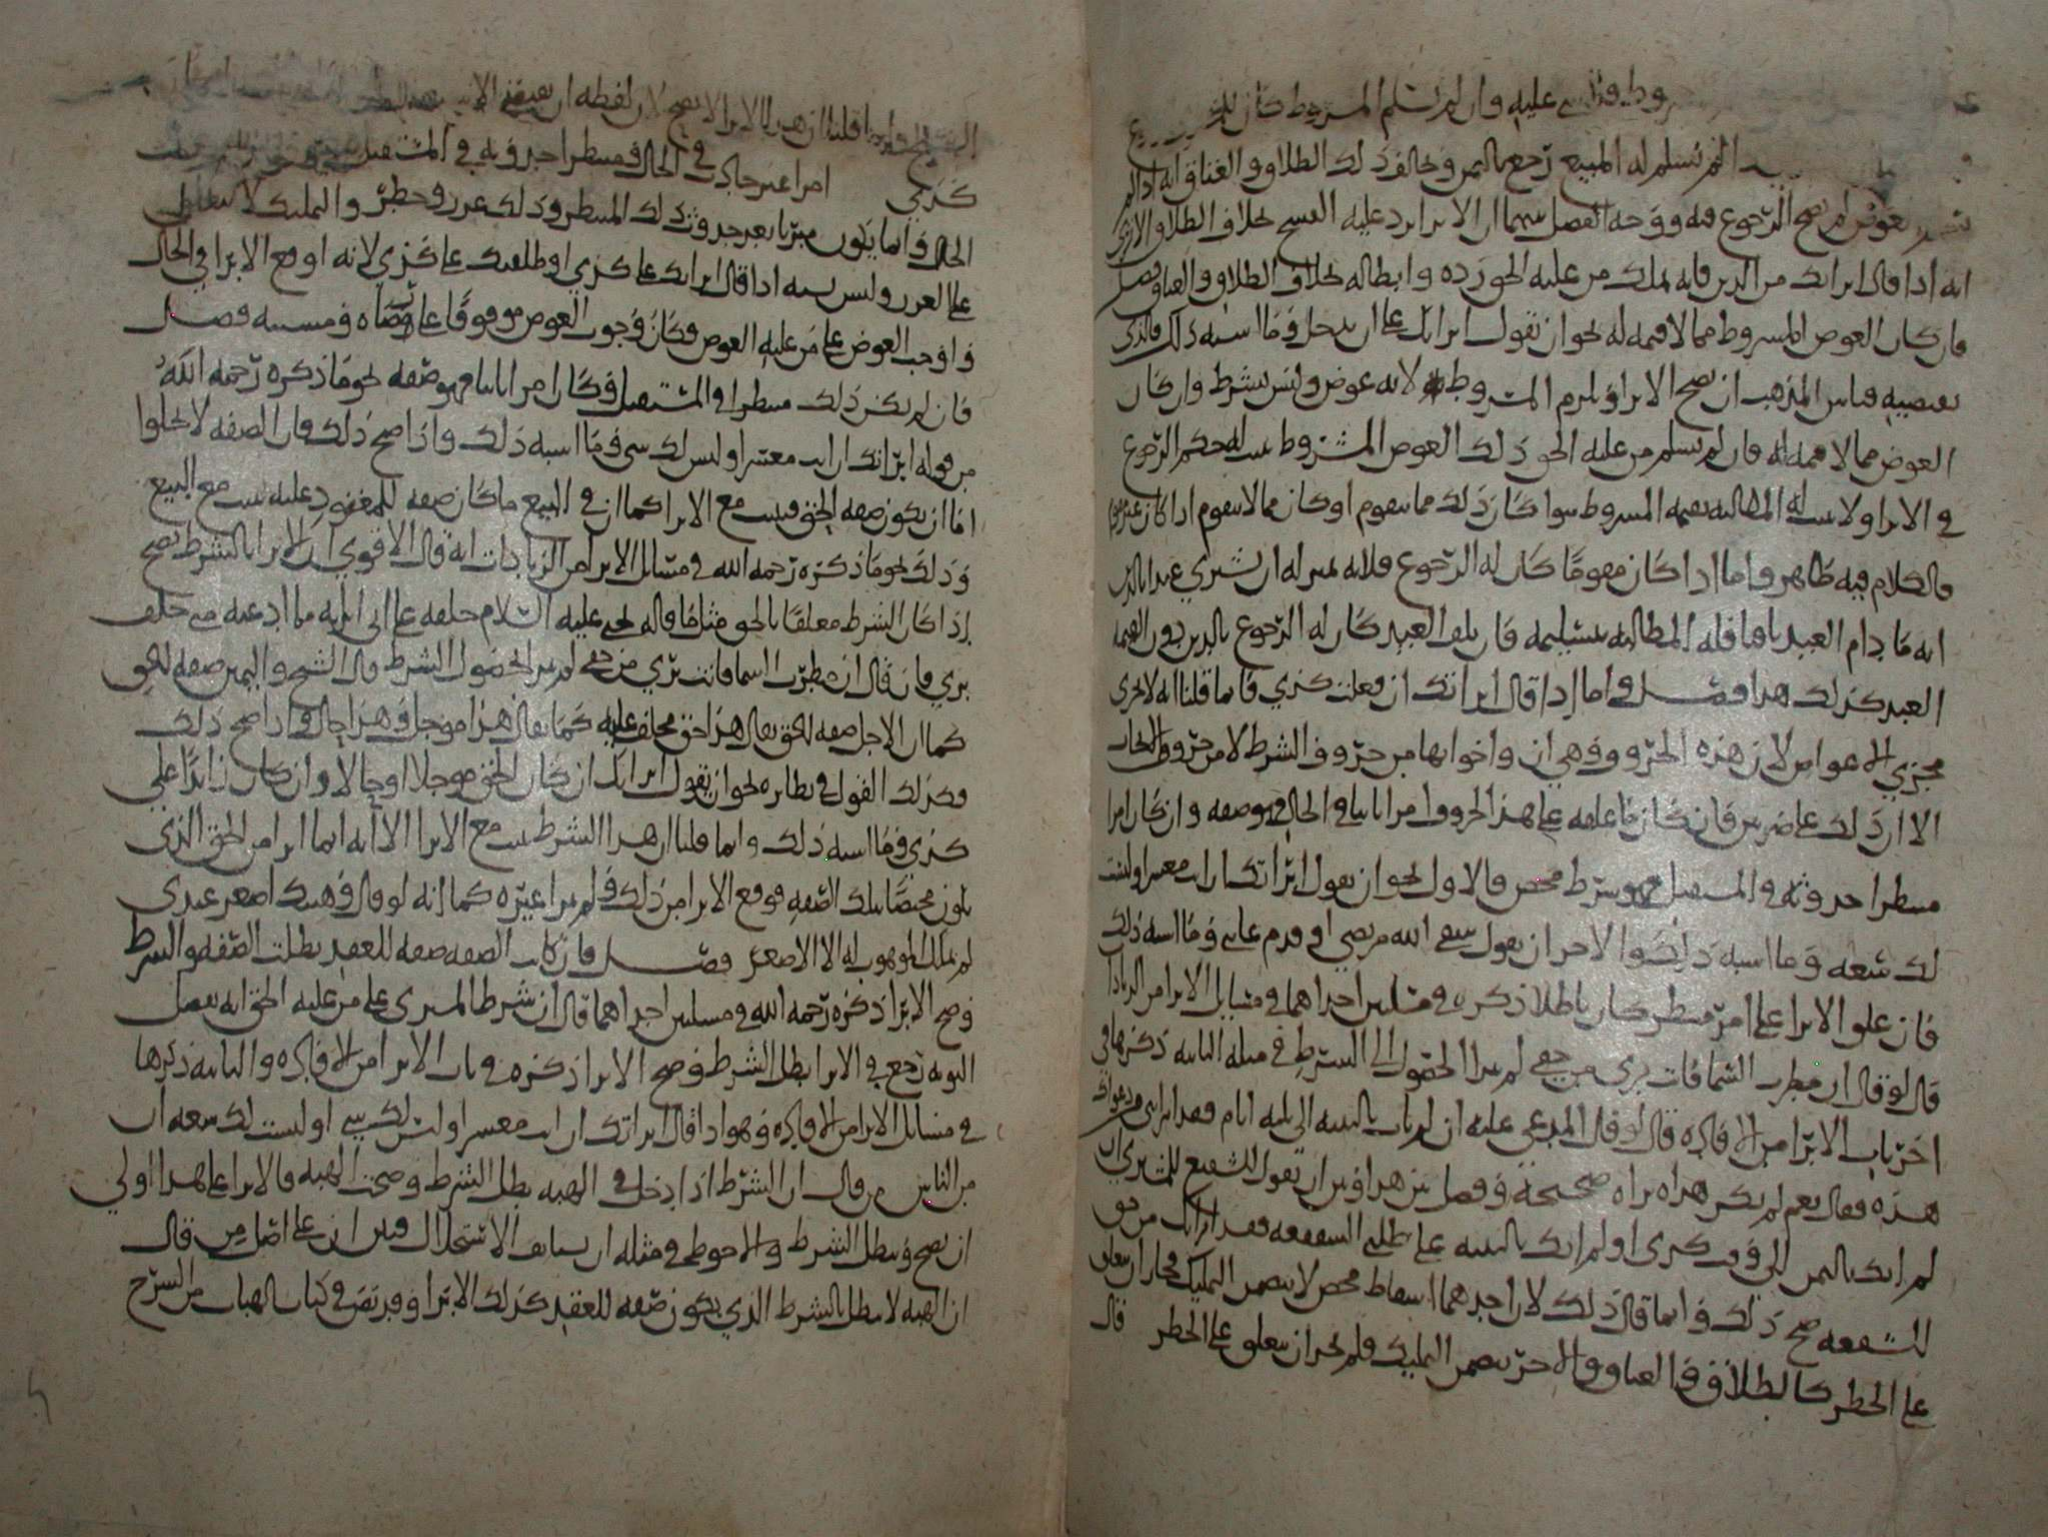 عليه وان لم يسلم المشروط كان
لم يسلم له المبيع رجع بالثمن وخالف ذلك الطلاق والعتاق انه اذا لم
بعوض لم يصح الرجوع فيه ووجه الفصل بينهما ان الابرا يرد عليه الفسخ بخلاف الطلاق الا ترى
انه اذا قال ابراتك من الدين فانه يملك من عليه الحق رده وابطاله بخلاف الطلاق والعتاق فصل
فان كان العوض المشروط مما لا قيمه له نحو ان تقول ابراتك على ان تدخل وما اشبه ذلك فالذي
يقتضيه قياس المذهب ان يصح الابرا ويلزم المشروط لانه عوض وليس بشرط وان كان
العوض مما لا قيمه له فان لم يسلم من عليه الحق ذلك العوض المشروط ثبت له حكم الرجوع
في الابرا ولا يثبت له المطالبه بقيمه المشروط سوا كان ذلك مما يتقوم او كان مما لا يتقوم اذا كان غير
فالكلام فيه ظاهر واما اذا كان مقومًا كان له الرجوع فلانه بمنزله ان يشتري عبدا بالدين
انه ما دام العبد باقيا فله المطالبه بتسليمه فان تلف العبد كان له الرجوع بالدين دون القيمه
العبد كذلك هذا فصل واما اذا قال ابراتك ان فعلت كذي فانما قلنا انه لا يجري
مجرى الاعواض لان هذه الحروف وهي ان واخواتها من حروف الشرط لا من حروف
الا ان ذلك على ضربين فان كان ما علقه على هذا الحروف امرا ثابتا في الحال فهو صفه وان كان امرا
منتظرا حدوثه في المستقبل فهو شرط محض فالاول نحو ان يقول ابراتك ان انت معسر او ليست
لك سعه وما اشبه ذلك والاخر ان يقول شفى الله مريضي او قدم غايبي وما اشبه ذلك
فان علق الابرا على امر منتظر كان باطلا ذكره في مسلتين احداهما في مسايل الابرا من الزيادات
قال لو قال ان مطرت السما فانت بري من حقي لم يبرا لحصول الشرط في مسله الثانيه ذكرها في
اخر باب الابرا من الافاده قال لو قال المدعي عليه ان لم ات بالبينه الى ثلثه ايام فقد ابراتني من دعواك
هذه فقال نعم لم يكن هذه براه صحيحة وفصل بين هذا وبين ان تقول الشفيع للمشتري ان
لم اتك بالثمن الى وقت كذي او لم اتك بالبينه على طلبي الشفعه فقد ابراتك من حق
الشفعه صح ذلك وانما قال ذلك لان احدهما اسقاط محض لا يتضمن التمليك فجاز ان يعلق
على الخطر كالطلاق والعتاق والاخر يتضمن التمليك ولم يجز ان يعلق على الخطر قال
قلنا ان هذا الابرا لا يصح لان لفظه ان يقتضي
كذي امرا غير حادث في الحال ومنتظرا حدوثه في المستقبل
الحال وانما يكون مبريا بعد حدوث ذلك المنتظر وذلك غرر وخطر والتمليك لا
على الغرر وليس يشبه اذا قال ابراتك على كذي او طلقتك على كذي لانه اوقع الابرا في الحال
واوجب العوض على من عليه العوض وكان وجوب العوض موقوفًا على رضاه ومشيته فصل
فان لم يكن ذلك منتظرا في المستقبل وكان امرا ثابتا فهو صفه نحو ما ذكره رحمه الله
من قوله ابراتك ان انت معسر او ليس لك شي وما اشبه ذلك واذا صح ذلك فان الصفه لا تخلوا
اما ان يكون صفه الحق فيثبت مع الابرا كما ان في البيع ما كان صفه للمعقود عليه ثبت مع البيع
وذلك نحو ما ذكره رحمه الله في مسايل الابرا من الزيادات انه قال الاقوى ان الابرا بالشرط يصح
اذا كان الشرط معلقًا بالحق مثل ما قاله يحيى عليه السلام حلفه على اني ابريه مما ادعيه متى حلف
بري فان قال ان مطرت السما فانت بري من حقي لم يبرا لحصول الشرط قال الشيخ واليمين صفه للحق
كما ان الاجل صفه للحق يقال هذا حق محلف عليه كما يقال هذا موجل وهذا حال واذا صح ذلك
فكذلك القول في نظايره نحو ان يقول ابراتك ان كان الحق موجلا او حالا وان كان زايدًا على
كذي وما اشبه ذلك وانما قلنا ان هذا الشرط يثبت مع الابرا الا انه انما ابرا من الحق الذي
يكون مختصًا بتلك الصفه فوقع الابرا من ذلك ولم يبرا غيره كما انه لو قال وهبتك اصغر عبدي
لم يملك الموهوب له الا الاصغر فصل فان كانت الصفه صفه للعقد بطلت الصفه والشرط
وصح الابرا ذكره رحمه الله في مسلتين احداهما قال ان شرط المبري على من عليه الحق انه بفضل
التوبه رجع في الابرا بطل الشرط وصح الابرا ذكره في باب الابرا من الافاده والثانيه ذكرها
في مسايل الابرا من الافاده وهو اذا قال ابراتك ان انت معسر او ليس لك شي او ليست لك سعه ان
من الناس من قال ان الشرط اذا دخل في الهبه بطل الشرط وصحت الهبه فالابرا على هذا اولى
ان يصح ويبطل الشرط والاحوط في مثله ان يستانف الاستحلال وبين ان على اصل من قال
ان الهبه لا تبطل بالشرط الذي يكون صفه للعقد كذلك الابرا وقد نص في كتاب الهبات من الشرح